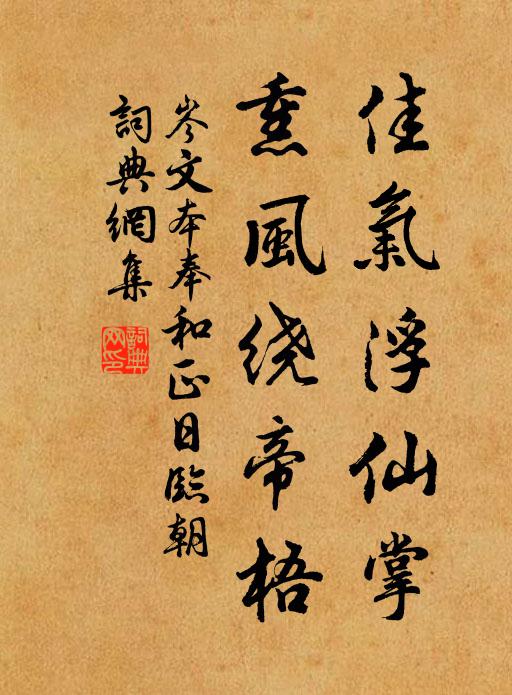 佳氣浮仙掌
熏風绕帝梧
岑文本奉和正日臨朝
詞典網集
詞典网印